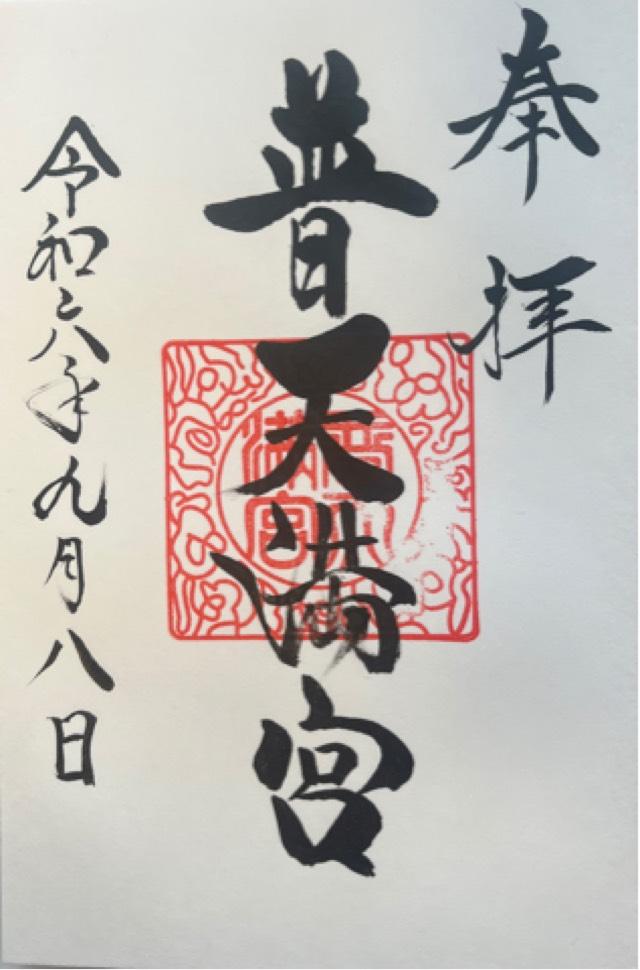 奉拝
普天満宮
令和六年九月八日